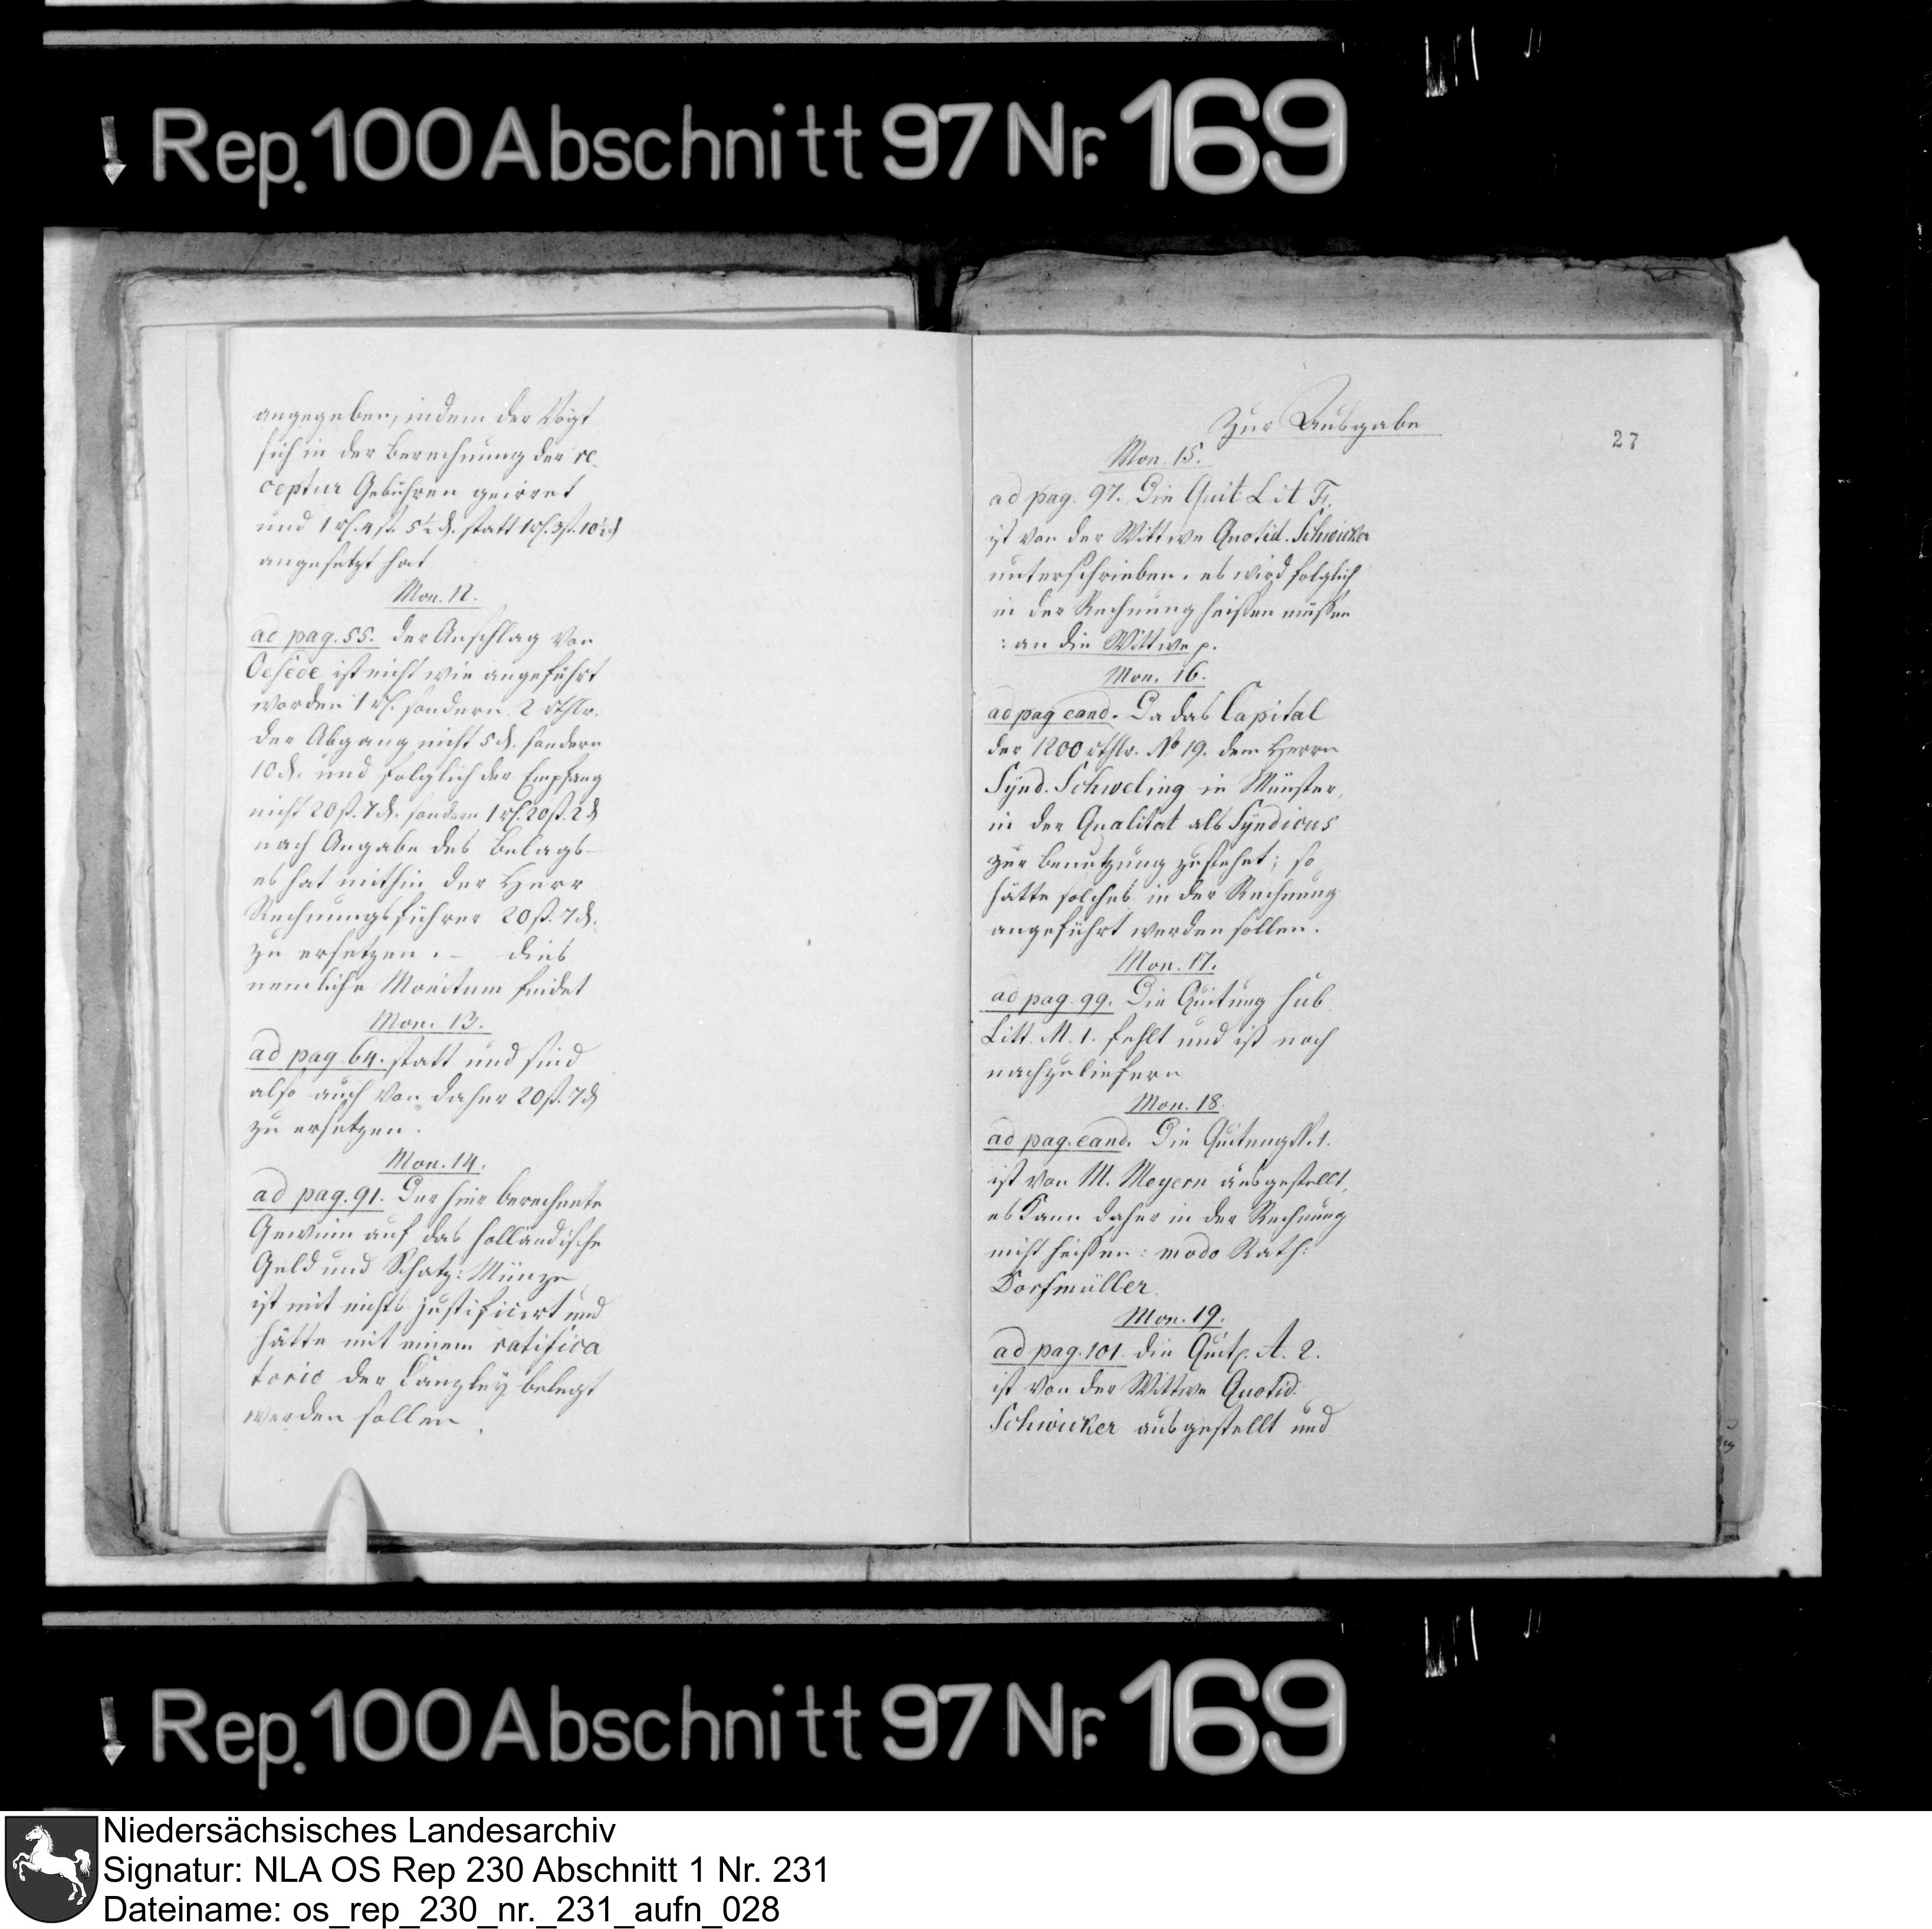 Rep. 100 Abschnitt 97 Nr. 169
angegeben, indem der Vogt
sich in der Berechnung der re-
ceptur Gebühren geirret
und 1 rl. 4 ß. 5½ d. statt 1 rl. 3 ß. 10½ d
angesetzt hat
Mon. 12.
ad pag. 55. der Anschlag von
Oesede ist nicht wie angeführt
worden 1 rl. sondern 2 rthlr.
der Abgang nicht 5 d. sondern
10 d. und folglich der Empfang
nicht 20 ß. 7 d. sondern 1 rl. 20 ß. 2 d
nach Angabe des Belags-
es hat mithin der Herr
Rechnungsführer 20 ß. 7 d.
zu ersetzen. - dies
nemliche Monitum findet
Mon. 13.
ad pag. 64. statt und sind
also auch von daher 20 ß. 7 d
zu ersetzen.
Mon. 14.
ad pag. 91. Der hier berechnete
Gewinn auf das holländische
Geld und Schatz: Münze
ist mit nichts justificirt und
hätte mit einem ratifica
torio der Canzley belegt
werden sollen.
Zur Ausgabe
27
Mon. 15.
ad pag. 97. Die Quit. Lit F.
ist von der Wittwe Quotid. Schwicker
unterschrieben. es wird folglich
in der Rechnung heißen müßen
: an die Wittwe p.
Mon. 16.
ad pag eand. Da das Capital
der 1200 rthlr. No 19. dem Herrn
Synd. Schweling in Münster,
in der Qualitat als Syndicus
zur Benutzung zustehet; so
hätte solches in der Rechnung
angeführt werden sollen.
Mon. 17.
ad pag. 99. Die Quitung sub
Litt. M. 1. fehlt und ist noch
nachzuliefern
Mon. 18.
ad pag. eand. Die Quitung 1.
ist von M. Meyern ausgestellt,
es kann daher in der Rechnung
nicht heißen: modo Rath:
Dorfmüller.
Mon. 19.
ad pag. 101. die Quit. A. 2.
ist von der Wittwe Quotid.
Schwicker ausgestellt und
Rep. 100 Abschnitt 97 Nr. 169
Niedersächsisches Landesarchiv
Signatur: NLA OS Rep 230 Abschnitt 1 Nr. 231
Dateiname: os_rep_230_nr._231_aufn_028